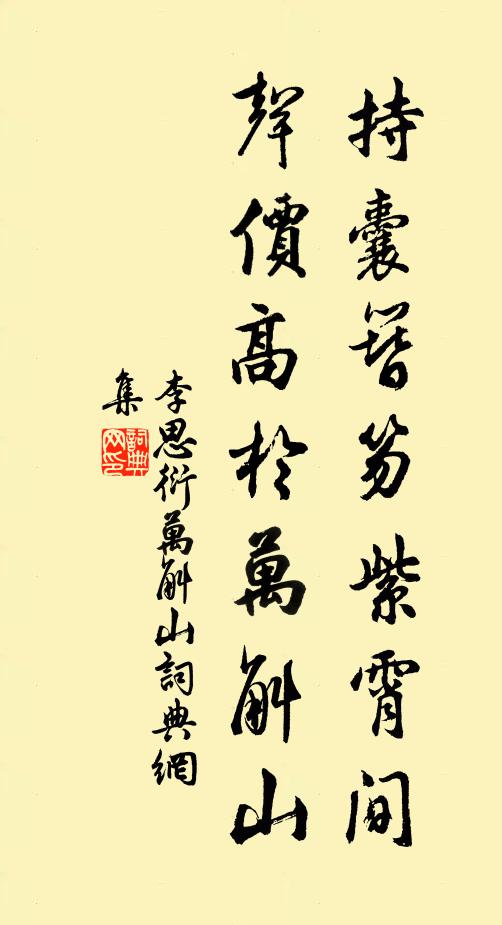 持囊簪笏紫霄间
聲價高於萬斛山
李思衍萬斛山詞典網
集
詞典网印